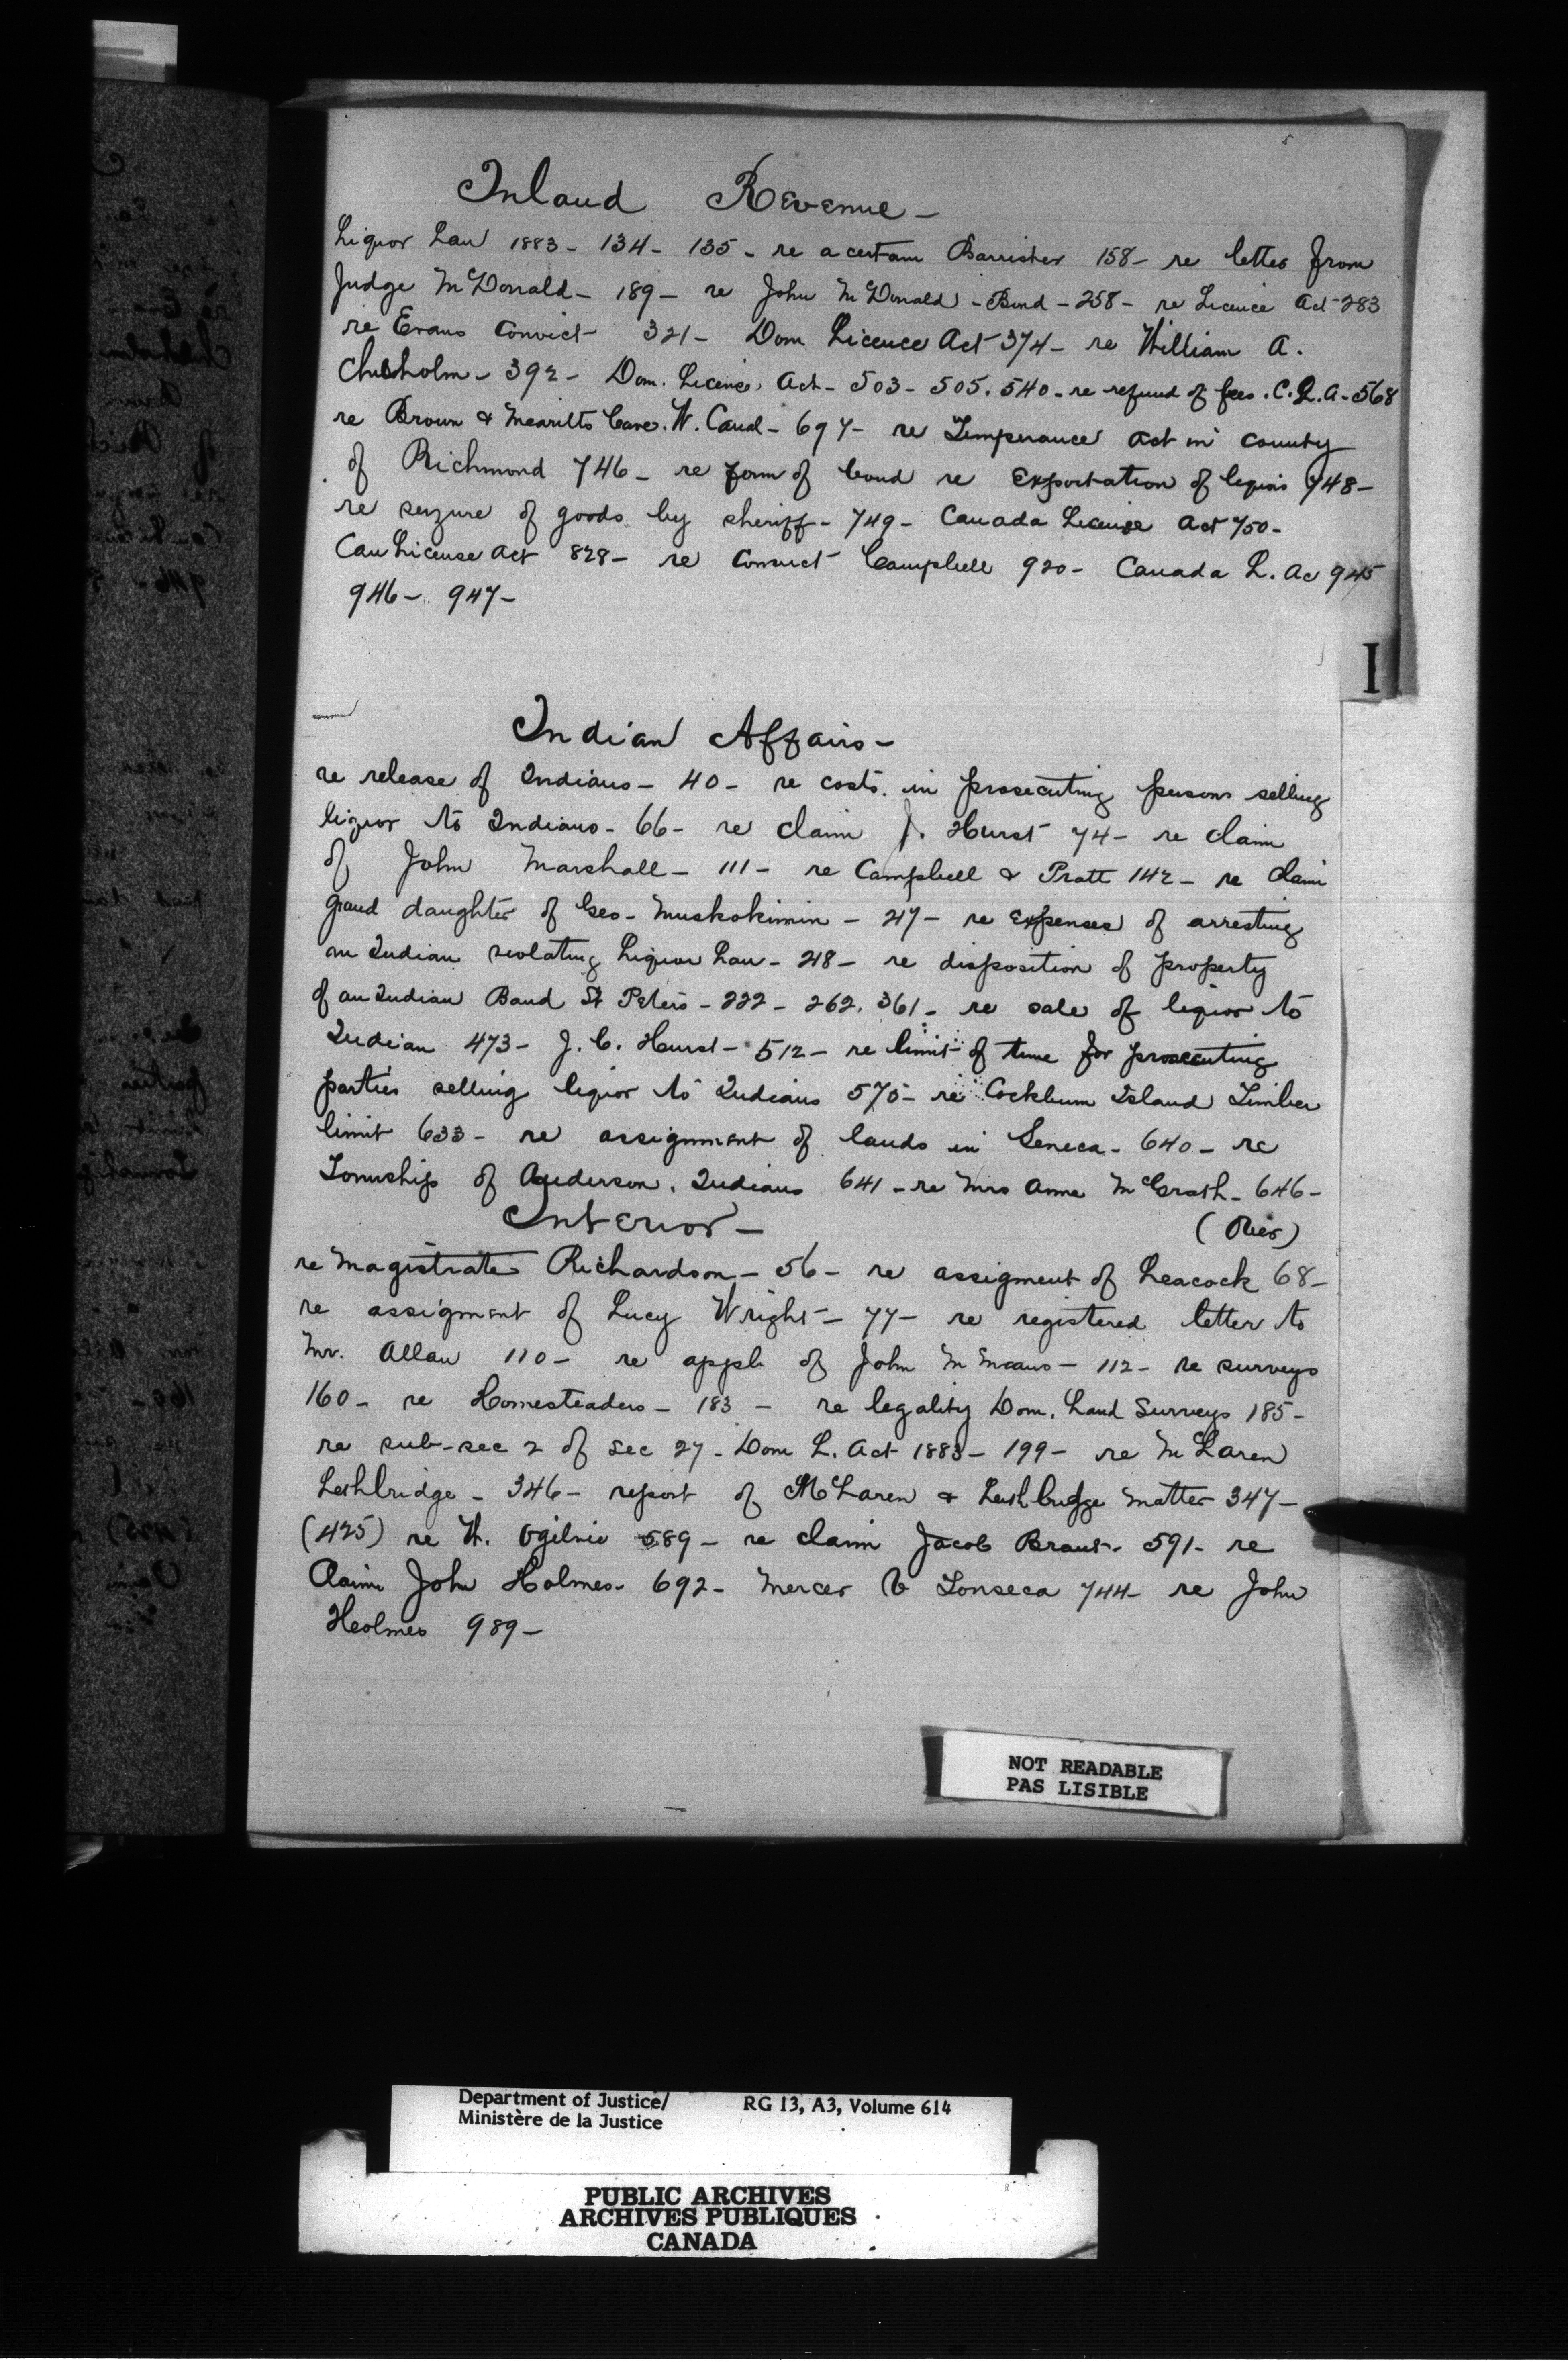 Inland Revenue -
Liquor Law 1883 - 134 - 135 - re a certain Barrister 158 - re letter from
Judge McDonald - 189 - re John McDonald - Bond - 258 - re Licence Act 283
re Evans Convict 321 - Dom Licence Act 374 - re William A.
Chisholm - 392 - Dom. Licence Act - 503 - 505. 540 - re refund of fees. C.L.A. - 568
re Brown & Merritts Case. W. Canal - 697 - re Temperance Act in County
of Richmond 746 - re form of bond re Exportation of liquors 748 -
re seizure of goods by sheriff - 749 - Canada License Act 750 -
Can License Act 828 - re Convict Campbell 920 - Canada L. Ac 945
946 - 947 -
I
Indian Affairs -
re release of Indians - 40 - re costs in prosecuting persons selling
liquor to Indians - 66 - re claim J. Hurst 74 - re claim
of John Marshall - 111 - re Campbell & Pratt 142 - re claim
grand daughter of Geo - Muskokimin - 217 - re expenses of arresting
an Indian violating Liquor Law - 218 - re disposition of property
of an Indian Band St Peters - 222 - 262. 361 - re sale of liquor to
Indian 473 - J. C. Hurst - 512 - re limit of time for prosecuting
parties selling liquor to Indians 575 - re Cockburn Island Timber
limit 633 - re assignment of lands in Seneca - 640 - re
Township of Anderson. Indians 641 - re Mrs Anne McGrath - 646 -
(Over)
Interior -
re Magistrate Richardson - 56 - re assigment of Leacock 68 -
re assigment of Lucy Wright - 77 - re registered letter to
Mr. Allan 110 - re appl. of John McMeans - 112 - re surveys
160 - re Homesteaders - 183 - re legality Dom. Land Surveys 185 -
re sub-sec 2 of Sec 27 - Dom L. Act 1883 - 199 - re McLaren
Lethbridge - 346 - report of McLaren & Lethbridge matter 347 -
(425) re W. Ogilvie 589 - re claim Jacob Brant - 591 - re
Claim John Holmes - 692 - Mercer v Fonseca 744 - re John
Heolmes 989 -
NOT READABLE
PAS LISIBLE
Department of Justice/ RG 13, A3, Volume 614
Ministère de la Justice
PUBLIC ARCHIVES
ARCHIVES PUBLIQUES
CANADA